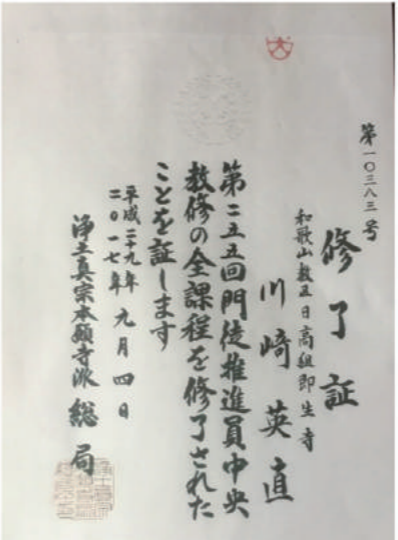 第一〇三八三号
修了証
和歌山教区日高組即生寺
川崎英直
第二五五回門徒推進員中央
教修の全課程を修了された
ことを証します
平成二十九年
二〇一七年
九月四日
浄土真宗本願寺派総局